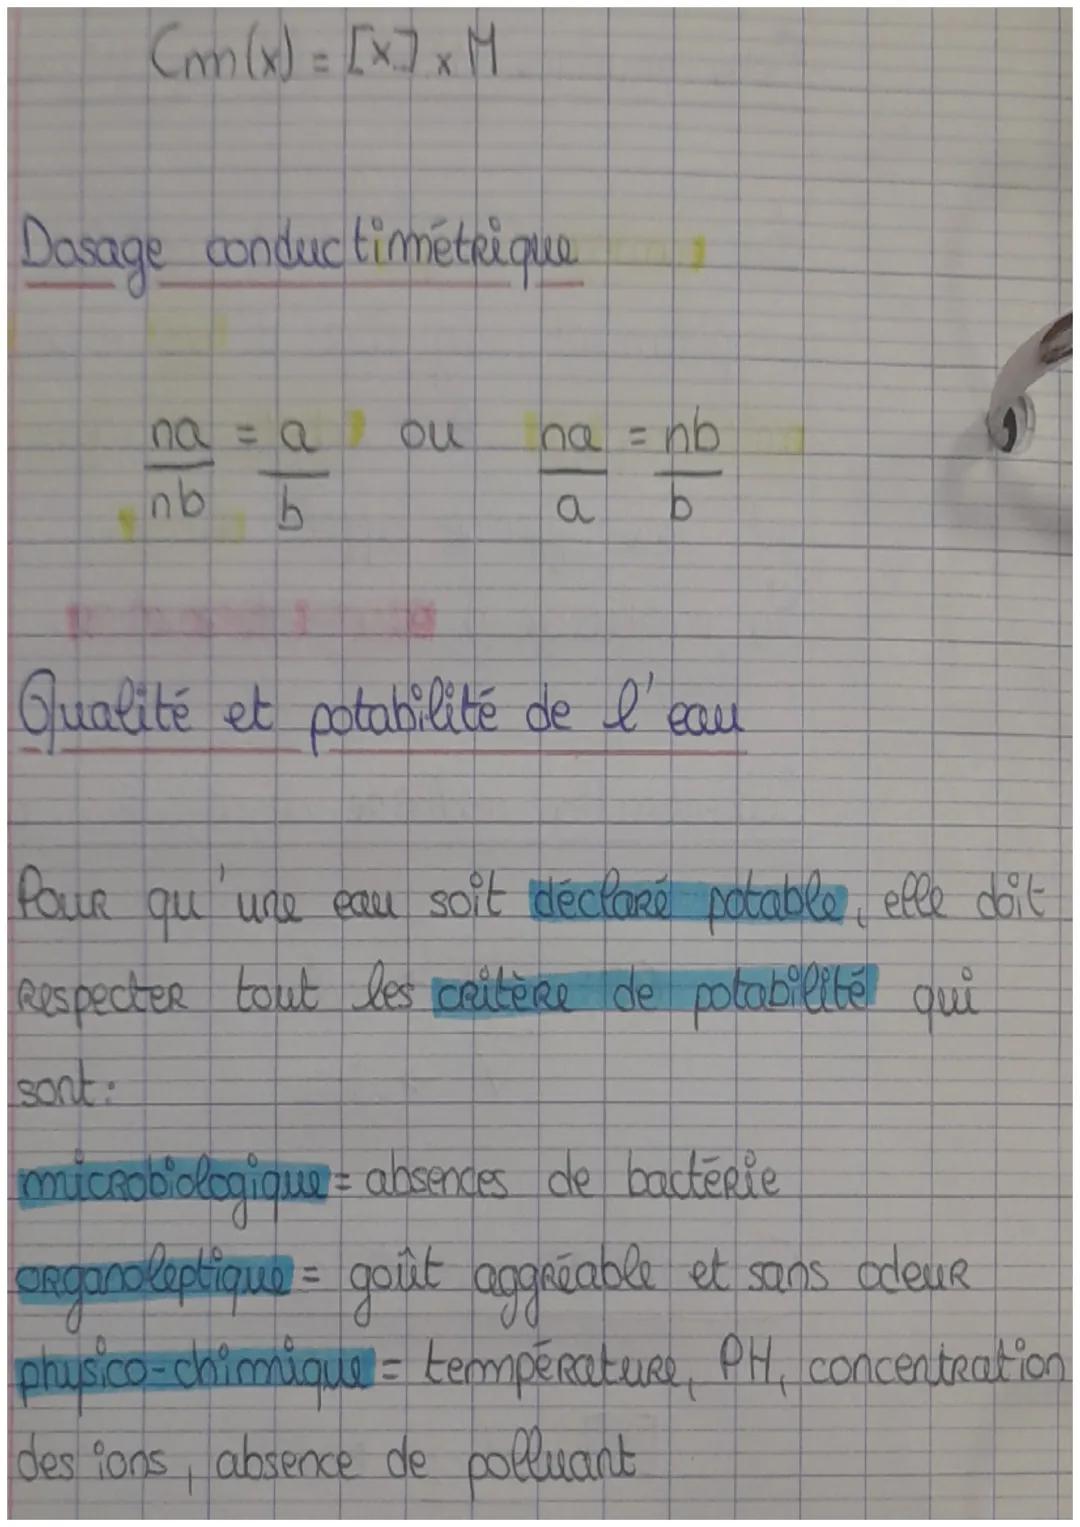 Cm(x) = [x] x M
Dosage conductimétrique
na = a ou na = nb
nb b a b
Qualité et potabilité de l'eau
Pour qu'une eau soit déclaré potable, elle doit
respecter tout les critère de potabilité qui
sont:
microbiologique = absences de bactérie
organoleptique = goût aggréable et sans odeur
physico-chimique = température, PH, concentration
des ions, absence de polluant